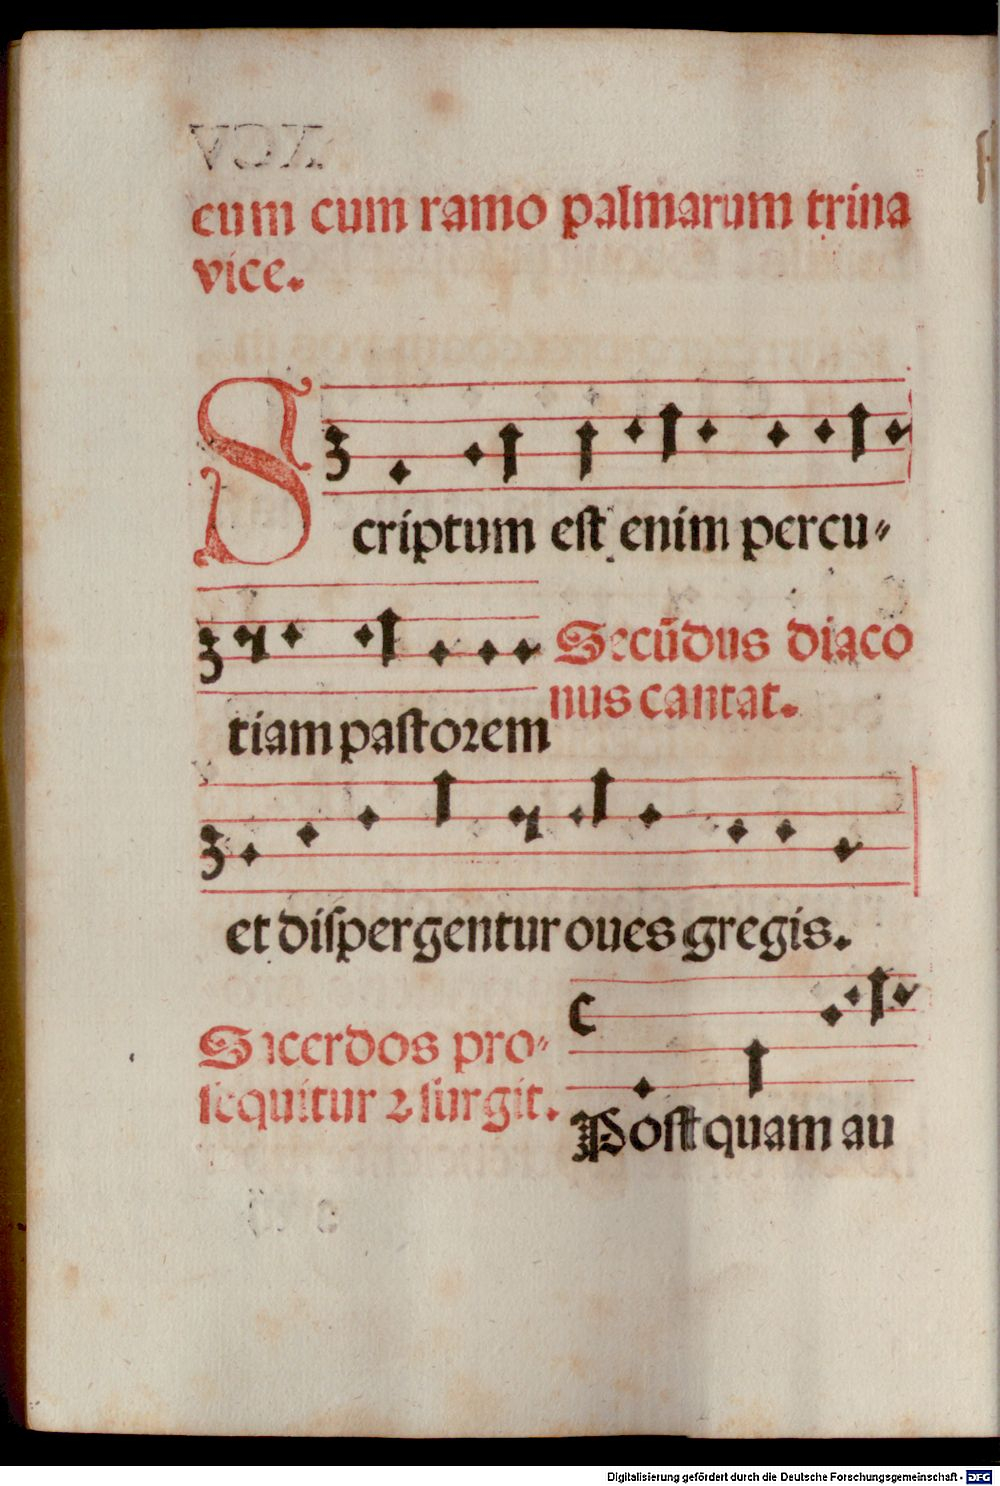 XCV
cum cum ramo palmarum trina
vice.
Scriptum est enim percu⸗
tiam pastorem
Secūdus diaco
nus cantat.
et dispergentur oues gregis.
Sacerdos pro⸗
sequitur ⁊ surgit.
Postquam au
Digitalisierung gefördert durch die Deutsche Forschungsgemeinschaft - DFG